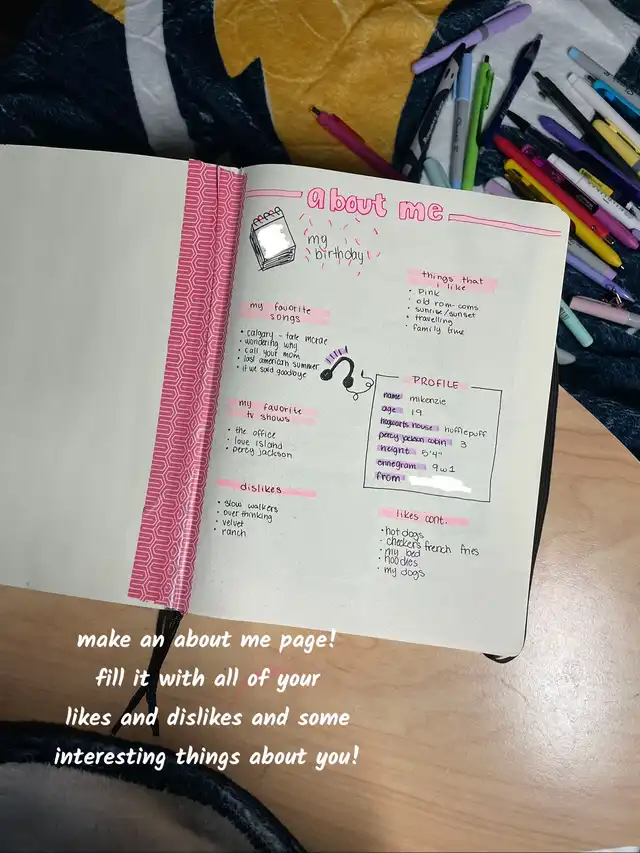 about me
my
birthday
things that
i like
• pink
• old rom-coms
• sunrise/sunset
• travelling
• family time
my favorite
songs
• calgary - tate mcrae
• wondering why
• call your mom
• last american summer
• if we said goodbye
my favorite
tv shows
• the office
• love island
• percy jackson
PROFILE
name mikenzie
age 19
hogwarts house hufflepuff
percy jackson cabin 3
height 5'4"
ennegram 9w1
from
dislikes
• slow walkers
• overthinking
• velvet
• ranch
likes cont.
• hot dogs
• checkers french fries
• my bed
• noodles
• my dogs
make an about me page!
fill it with all of your
likes and dislikes and some
interesting things about you!